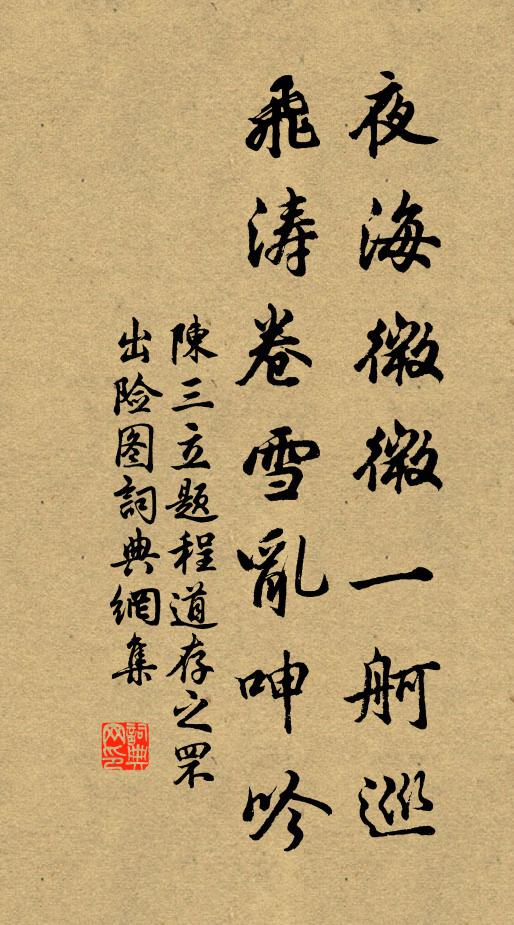 夜海微微一舸巡
飛涛卷雪亂呻吟
陳三立題程道存之罘
出险图詞典網集
詞典
网印